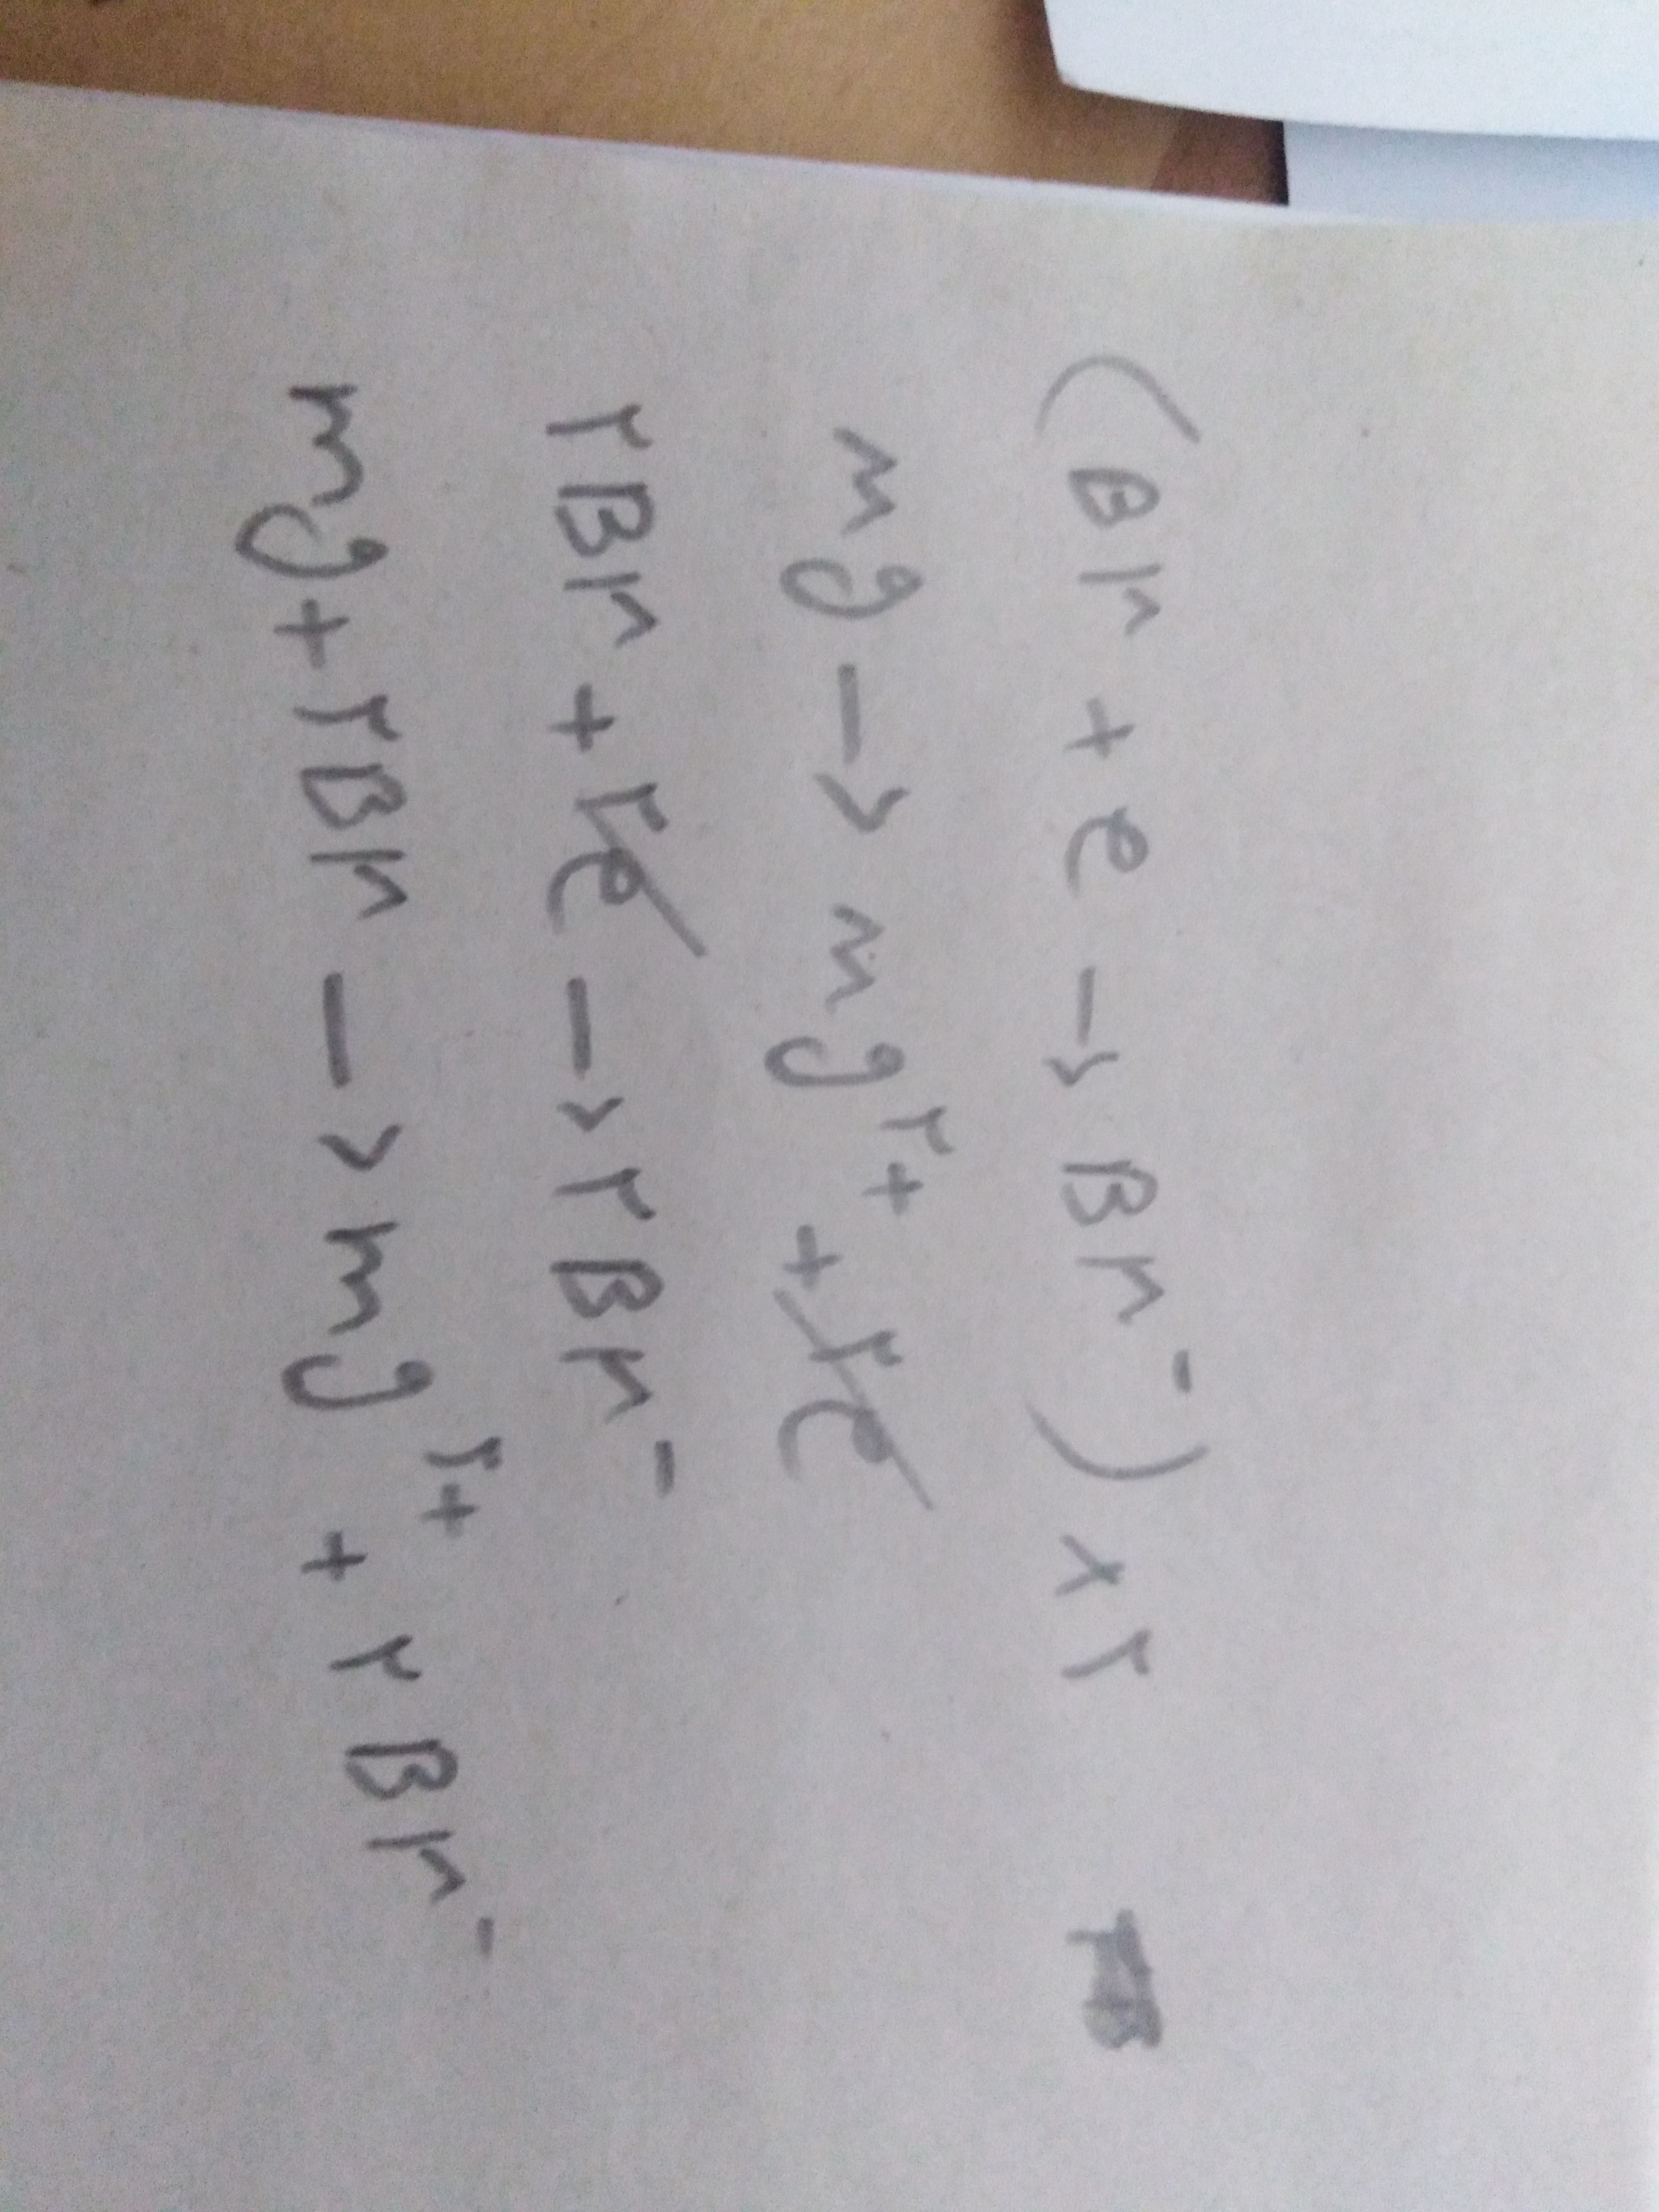 (Br + e → Br⁻) × ۲
mg → mg²⁺ + ۲e
۲Br + ۲e → ۲Br⁻
mg + ۲Br → mg²⁺ + ۲Br⁻